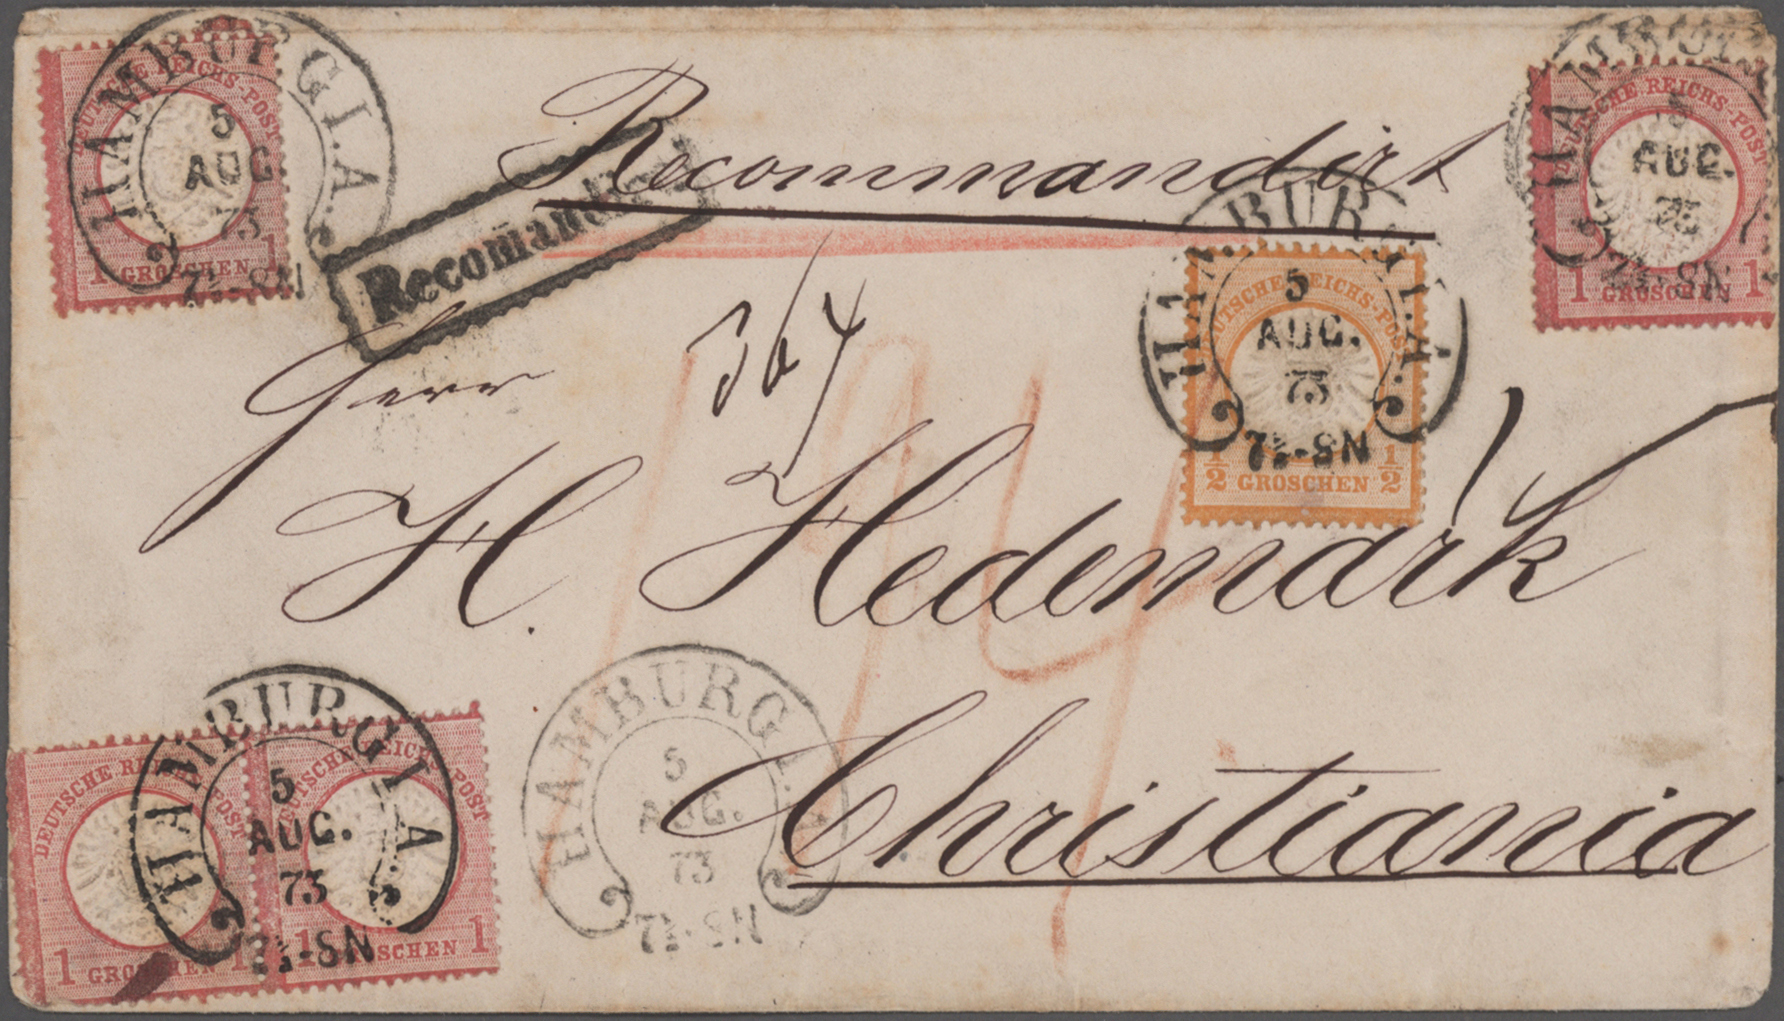 HAMBURG I.A.
5
AUG
73
7½-8N
DEUTSCHE REICHS-POST
1 GROSCHEN 1
Recommandirt
Recomandirt
HAMBURG I.A.
AUG.
73
7½-8N
DEUTSCHE REICHS-POST
1 GROSCHEN 1
Herr
367
HAMBURG I.A.
5
AUG.
73
7½-8N
DEUTSCHE REICHS-POST
½ GROSCHEN ½
H. Hedemark
Christiania
HAMBURG I.A.
5
AUG.
73
7½-8N
DEUTSCHE REICHS-POST
1 GROSCHEN 1
DEUTSCHE REICHS-POST
1 GROSCHEN 1
HAMBURG I.A.
5
AUG.
73
7½-8N